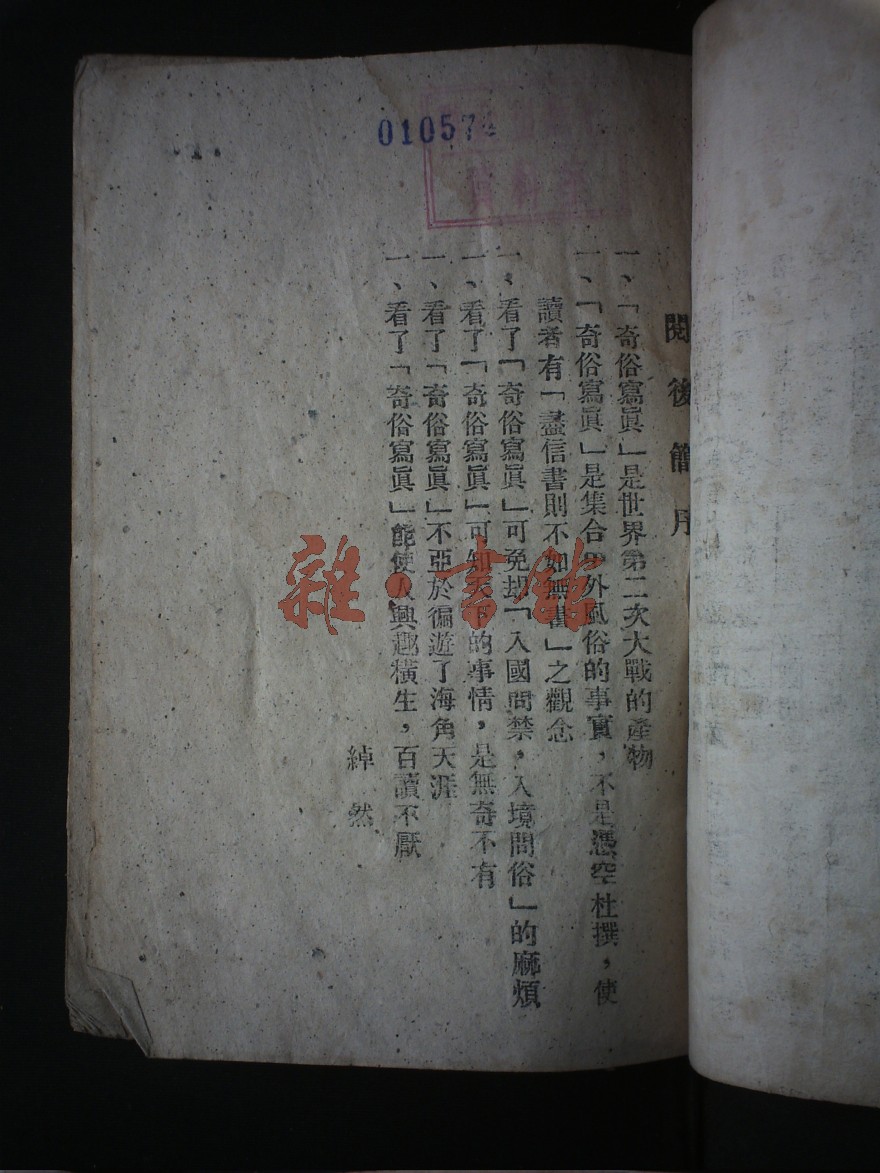 010574
資料室
閱後簡序
一、「奇俗寫眞」是世界第二次大戰的產物
一、「奇俗寫眞」是集合中外風俗的事實，不是憑空杜撰，使
讀者有「盡信書則不如無書」之觀念
一、看了「奇俗寫眞」可免却「入國問禁，入境問俗」的麻煩
一、看了「奇俗寫眞」可知天下的事情，是無奇不有
一、看了「奇俗寫眞」不亞於徧遊了海角天涯
一、看了「奇俗寫眞」能使人興趣橫生，百讀不厭
綽然
雜·書館